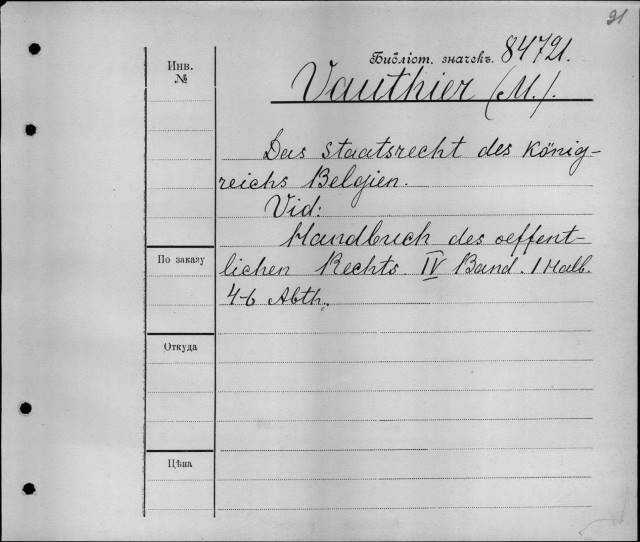 21
Инв.
№
Библіот. значекъ. 84721.
Vauthier (M.).
Das Staatsrecht des König-
reichs Belgien.
Vid:
Handbuch des oeffent-
lichen Rechts. IV Band. 1 Halb.
По заказу
4-6 Abth.
Откуда
Цѣна